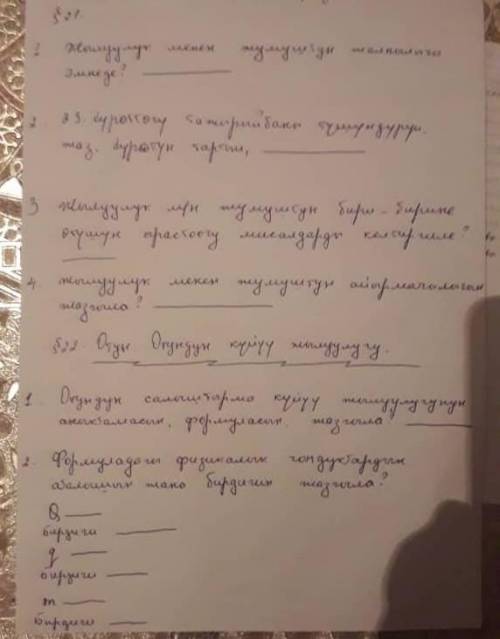 §21.
1 Жылуулук менен жумуштун жалпылыгы
эмнеде?
2. 23. сүрөттөгү тажрыйбаны түшүндүрүп
жаз. Сүрөтүн тартып,
3 Жылуулук мүн жумуштун бири-бирине
өтүшүн практоогу мисалдарды келтиргиле?
4. Жылуулук менен жумуштун айырмачылыгын
жазгыла?
§22. Отун. Отундун күйүү жылуулугу.
1. Отундун салыштырма күйүү жылуулугунун
аныктамасын, формуласын жазгыла?
2. Формуладагы физикалык чоңдуктардын
аталышын жана бирдигин жазгыла?
Q
бирдиги
q
бирдиги
m
бирдиги